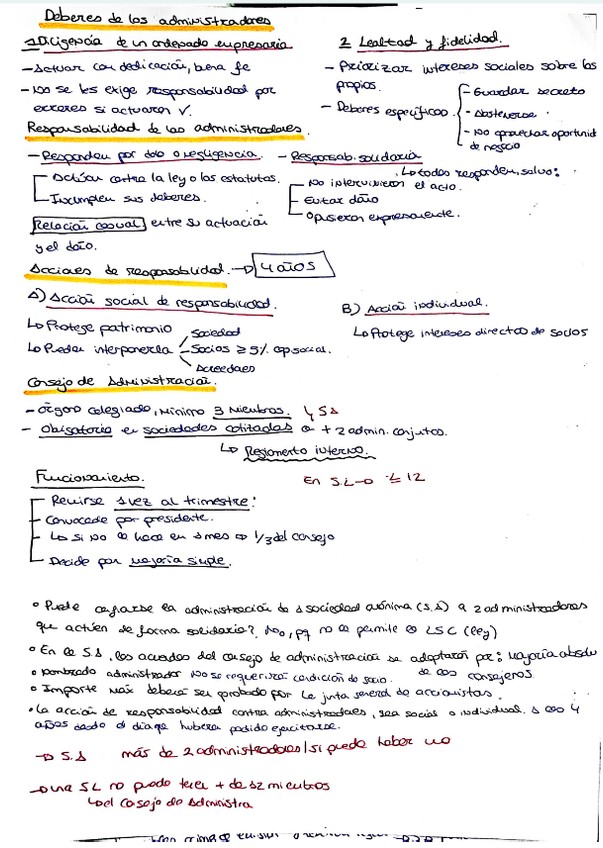 Deberes de los administradores
1 Diligencia de un ordenado empresario
- Actuar con dedicación, buena fe
- No se les exige responsabilidad por
errores si actuaron V.
2 Lealtad y fidelidad.
- Priorizar intereses sociales sobre los
propios.
- Deberes específicos
- Guardar secreto
- Abstenerse
- No aprovechar oportunid
de negocio
Responsabilidad de los administradores.
- Responden por dolo o negligencia.
Actúan contra la ley o los estatutos.
Incumplen sus deberes.
Relación causal entre su actuación
y el daño.
- Responsab. solidaria
↳ todos responden, salvo:
- No intervinieron el acto.
- Evitar daño
- Opusieron expresamente.
Acciones de responsabilidad. → 4 años
A) Acción social de responsabilidad.
↳ Protege patrimonio
↳ Pueden interponerla
Sociedad
Socios ≥ 5% cap social.
Acreedores
B) Acción individual.
↳ Protege intereses directos de socios
Consejo de Administración.
- Órgano colegiado, mínimo 3 miembros. ↳ SA
- Obligatorio en sociedades cotizadas o + 2 admin. conjuntos.
↳ Reglamento interno.
En S.L → ≤ 12
Funcionamiento.
- Reunirse 1 vez al trimestre:
- Convocado por presidente.
- ↳ Si no lo hace en 1 mes ⇒ 1/3 del consejo
- Decide por mayoría simple.
• Puede confiarse la administración de 1 sociedad anónima (S.A) a 2 administradores
que actúen de forma solidaria? No, pq no lo permite la LSC (ley)
• En la S.A, los acuerdos del consejo de administración se adoptarán por: mayoría absolu
de los consejeros
• Nombrado administrador no se requerirá condición de socio.
• Importe máx deberá ser probado por la junta general de accionistas.
• La acción de responsabilidad contra administradores, sea social o individual. a los 4
años desde el día que hubiera podido ejercitarse.
→ S.A más de 2 administradores / si puede haber uno
→ una SL no puede tener + de 12 miembros
↳ del Consejo de Administra